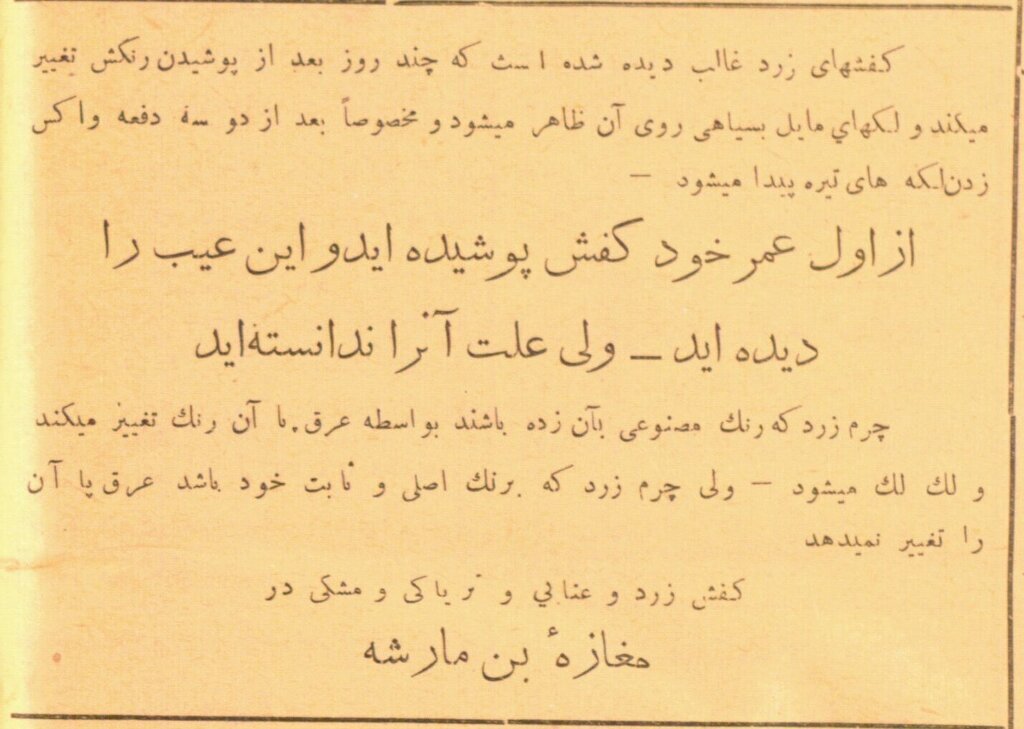 كفشهای زرد غالب دیده شده است که چند روز بعد از پوشیدن رنکش تغییر
میکند و لکهاي مایل بسیاهی روی آن ظاهر میشود و مخصوصاً بعد از دو سه دفعه واکس
زدن لکه های تیره پیدا میشود —
از اول عمر خود کفش پوشیده اید و این عیب را
دیده اید — ولی علت آنرا ندانسته‌اید
چرم زرد که رنك مصنوعی بآن زده باشند بواسطه عرق پا آن رنك تغییر میکند
و لك لك میشود — ولی چرم زرد که برنك اصلی و ثابت خود باشد عرق پا آن
را تغییر نمیدهد
کفش زرد و عنابي و تریاکی و مشکی در
مغازهٔ بن مارشه